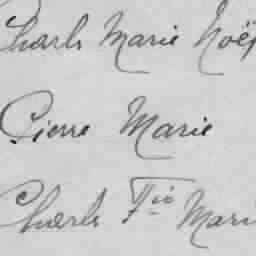 Charls Marie Noël
Pierre Marie
Charls Fçis Marie